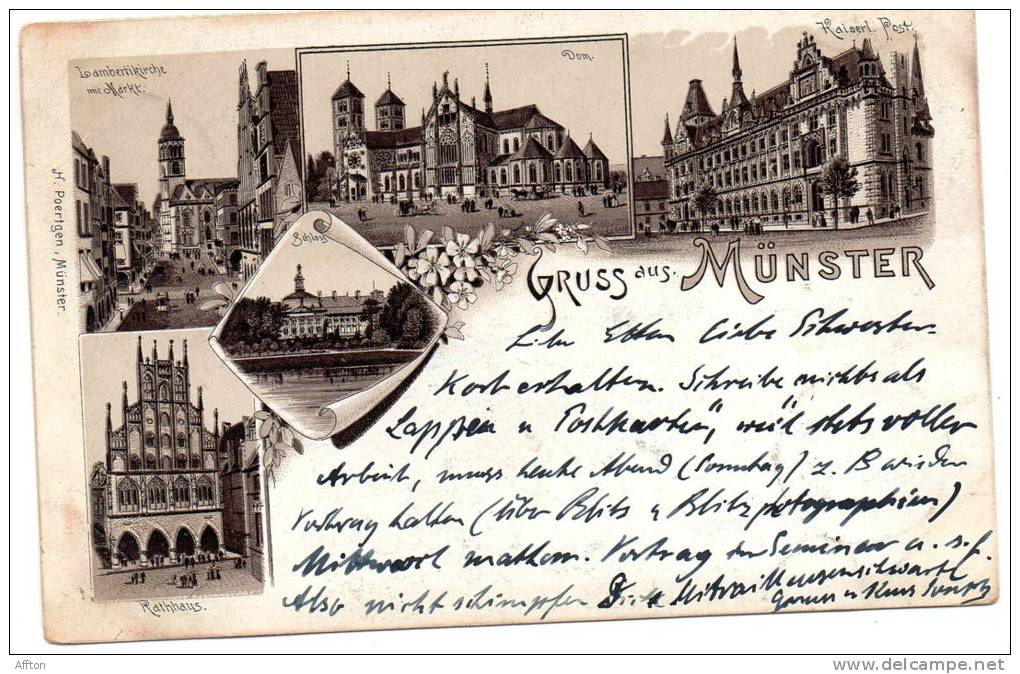 Lambertikirche
mit Markt.
Dom.
Kaiserl. Post.
H. Poertgen, Münster.
Schloß
GRUSS aus. MÜNSTER
Rathhaus.
Liebe Schwester.
Kort erhalten. Schreibe nichts als
Lappien u Posthkarten, weil stets voller
Arbeit, muss heute Abend (Sonntag) z. B wieder
Vortrag halten (über Blitz u Blitzphotographien)
Mittwoch mathem. Vortrag Seminar u. s. f.
Also nicht schimpfen
Gruss u Kuss
Affton
http://www.delcampe.net